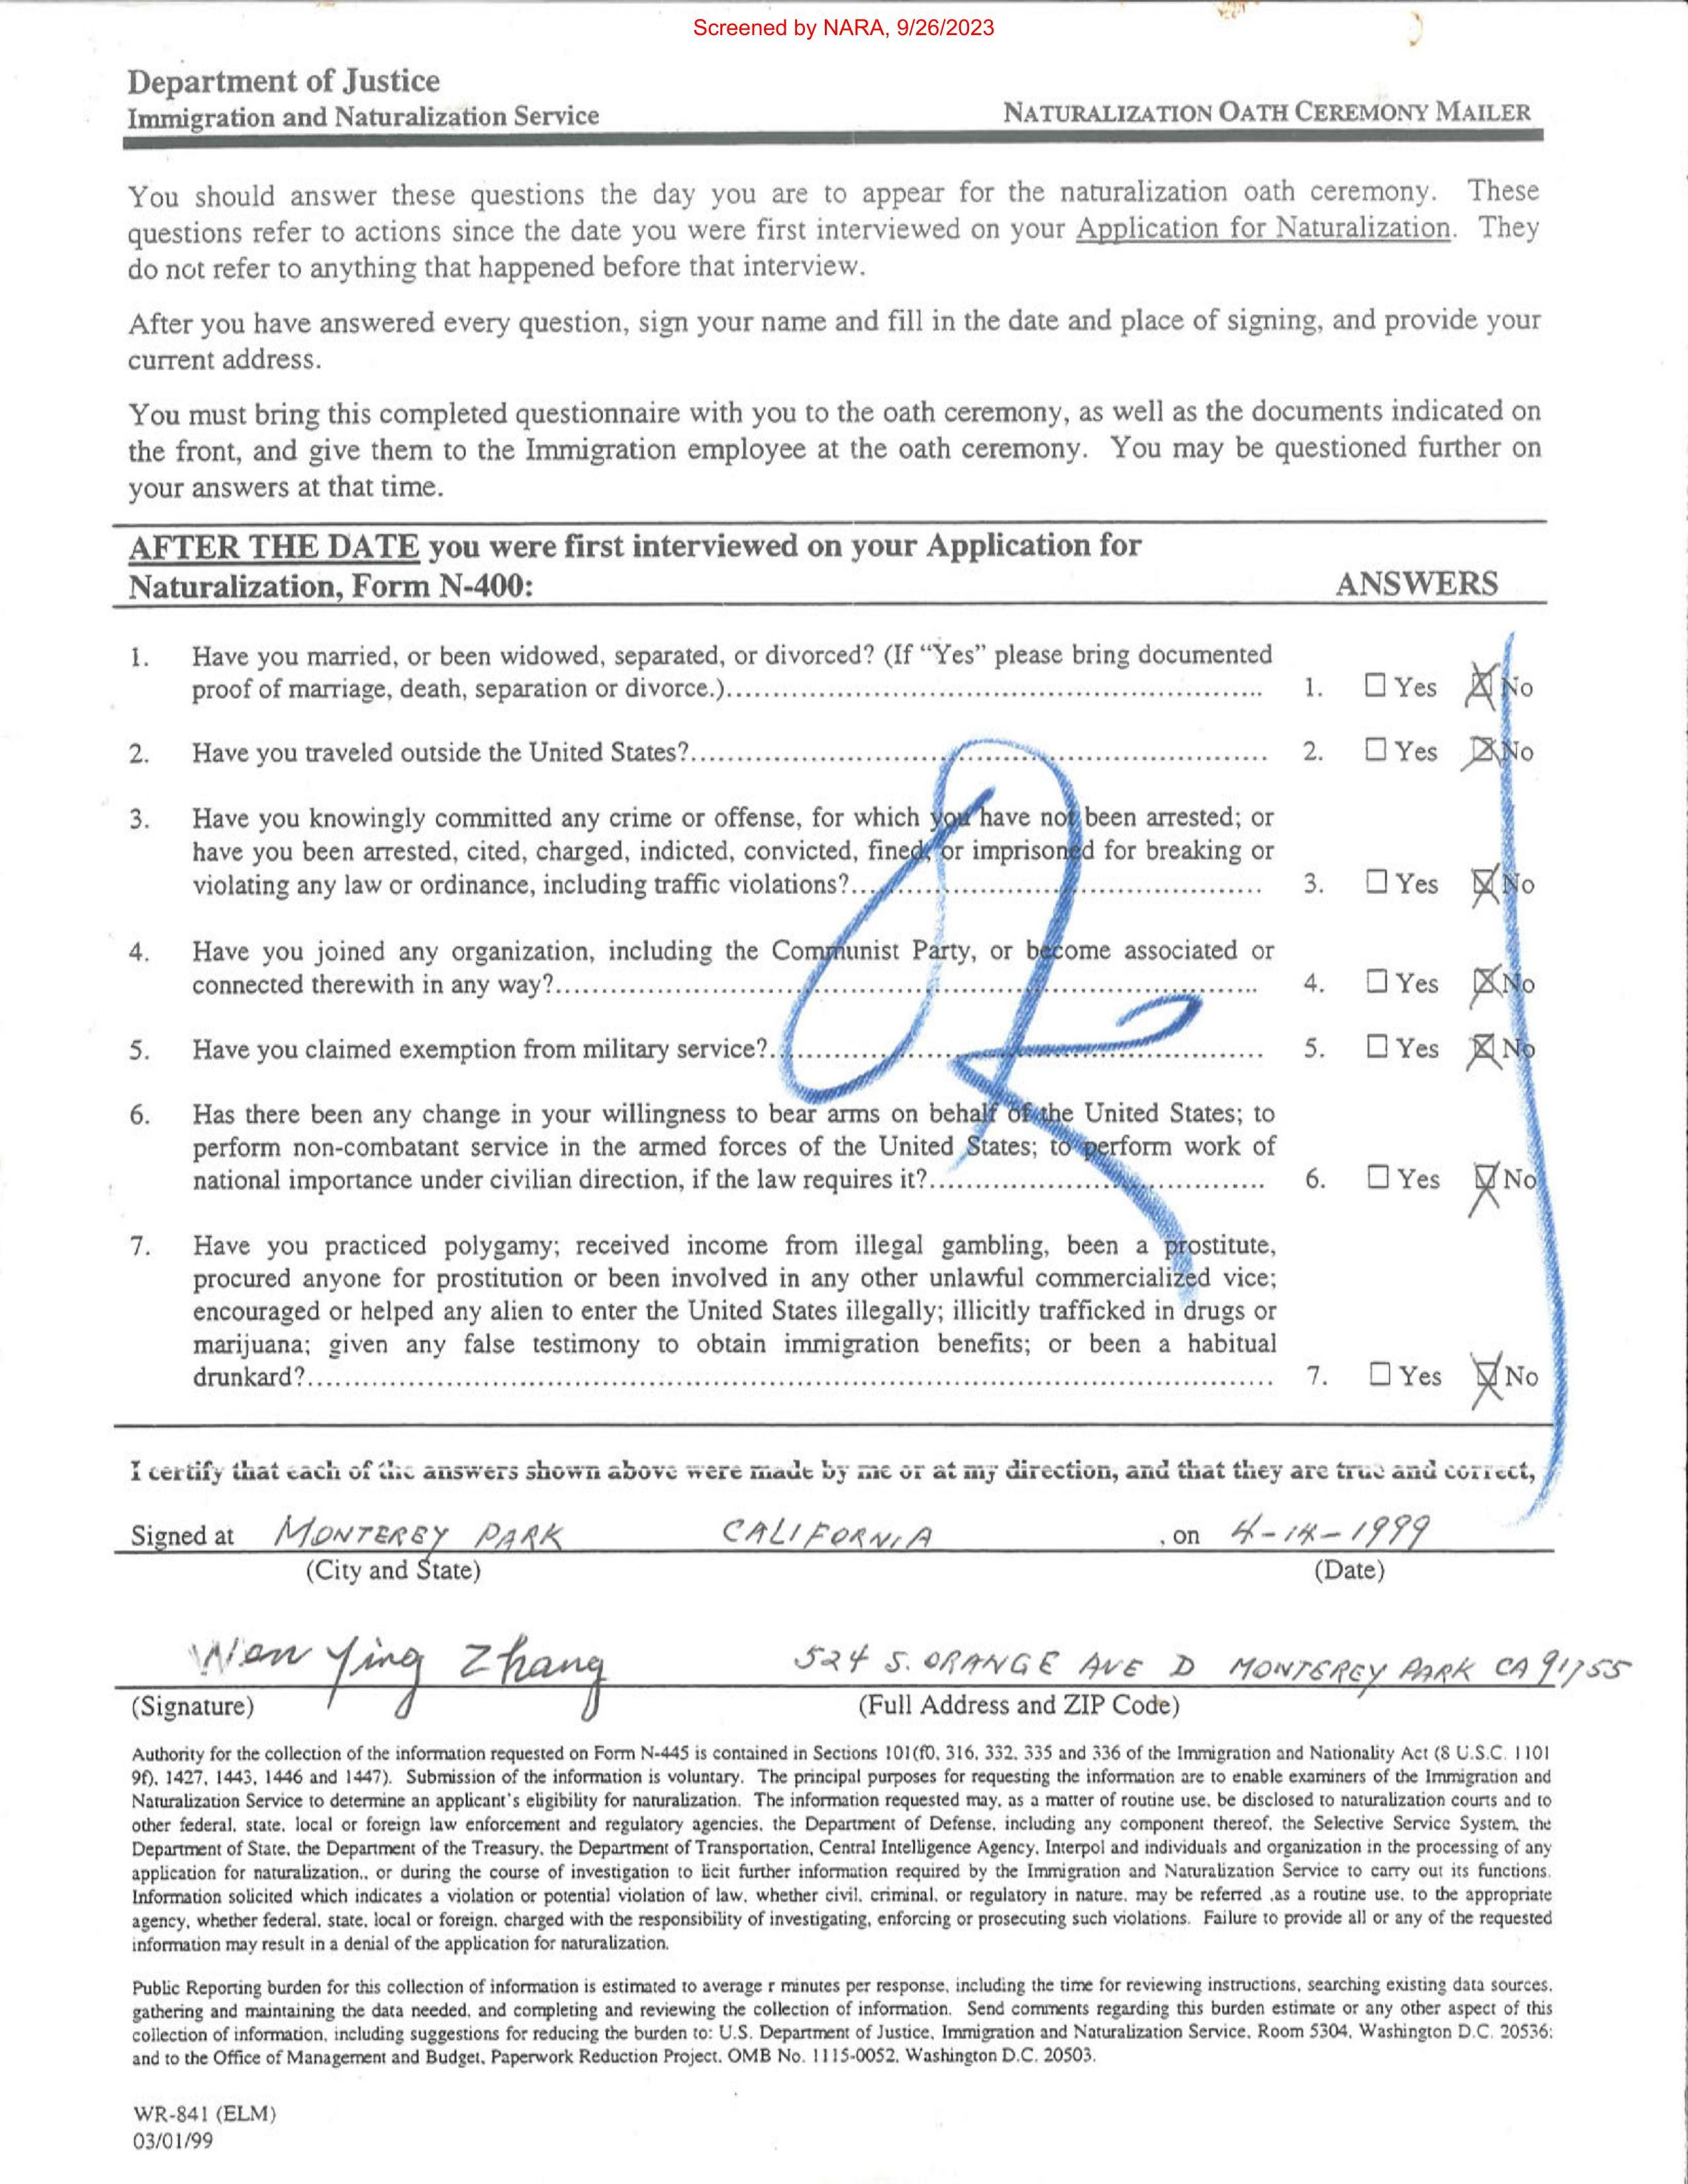 Screened by NARA, 9/26/2023
Department of Justice
Immigration and Naturalization Service
NATURALIZATION OATH CEREMONY MAILER
You should answer these questions the day you are to appear for the naturalization oath ceremony. These
questions refer to actions since the date you were first interviewed on your Application for Naturalization. They
do not refer to anything that happened before that interview.
After you have answered every question, sign your name and fill in the date and place of signing, and provide your
current address.
You must bring this completed questionnaire with you to the oath ceremony, as well as the documents indicated on
the front, and give them to the Immigration employee at the oath ceremony. You may be questioned further on
your answers at that time.
AFTER THE DATE you were first interviewed on your Application for
Naturalization, Form N-400: ANSWERS
1. Have you married, or been widowed, separated, or divorced? (If "Yes" please bring documented
proof of marriage, death, separation or divorce.)........ 1. ☐ Yes ☒ No
2. Have you traveled outside the United States?........ 2. ☐ Yes ☒ No
3. Have you knowingly committed any crime or offense, for which you have not been arrested; or
have you been arrested, cited, charged, indicted, convicted, fined, or imprisoned for breaking or
violating any law or ordinance, including traffic violations?........ 3. ☐ Yes ☒ No
4. Have you joined any organization, including the Communist Party, or become associated or
connected therewith in any way?........ 4. ☐ Yes ☒ No
5. Have you claimed exemption from military service?........ 5. ☐ Yes ☒ No
6. Has there been any change in your willingness to bear arms on behalf of the United States; to
perform non-combatant service in the armed forces of the United States; to perform work of
national importance under civilian direction, if the law requires it?........ 6. ☐ Yes ☒ No
7. Have you practiced polygamy; received income from illegal gambling, been a prostitute,
procured anyone for prostitution or been involved in any other unlawful commercialized vice;
encouraged or helped any alien to enter the United States illegally; illicitly trafficked in drugs or
marijuana; given any false testimony to obtain immigration benefits; or been a habitual
drunkard?........ 7. ☐ Yes ☒ No
I certify that each of the answers shown above were made by me or at my direction, and that they are true and correct,
Signed at MONTEREY PARK CALIFORNIA , on 4-14-1999
(City and State) (Date)
Wen Ying Zhang 524 S. ORANGE AVE D MONTEREY PARK CA 91755
(Signature) (Full Address and ZIP Code)
Authority for the collection of the information requested on Form N-445 is contained in Sections 101(f0, 316, 332, 335 and 336 of the Immigration and Nationality Act (8 U.S.C. 1101
9f), 1427, 1443, 1446 and 1447). Submission of the information is voluntary. The principal purposes for requesting the information are to enable examiners of the Immigration and
Naturalization Service to determine an applicant's eligibility for naturalization. The information requested may, as a matter of routine use, be disclosed to naturalization courts and to
other federal, state, local or foreign law enforcement and regulatory agencies, the Department of Defense, including any component thereof, the Selective Service System, the
Department of State, the Department of the Treasury, the Department of Transportation, Central Intelligence Agency, Interpol and individuals and organization in the processing of any
application for naturalization., or during the course of investigation to licit further information required by the Immigration and Naturalization Service to carry out its functions.
Information solicited which indicates a violation or potential violation of law, whether civil, criminal, or regulatory in nature, may be referred .as a routine use, to the appropriate
agency, whether federal, state, local or foreign, charged with the responsibility of investigating, enforcing or prosecuting such violations. Failure to provide all or any of the requested
information may result in a denial of the application for naturalization.
Public Reporting burden for this collection of information is estimated to average r minutes per response, including the time for reviewing instructions, searching existing data sources,
gathering and maintaining the data needed, and completing and reviewing the collection of information. Send comments regarding this burden estimate or any other aspect of this
collection of information, including suggestions for reducing the burden to: U.S. Department of Justice, Immigration and Naturalization Service, Room 5304, Washington D.C. 20536;
and to the Office of Management and Budget, Paperwork Reduction Project, OMB No. 1115-0052, Washington D.C. 20503.
WR-841 (ELM)
03/01/99